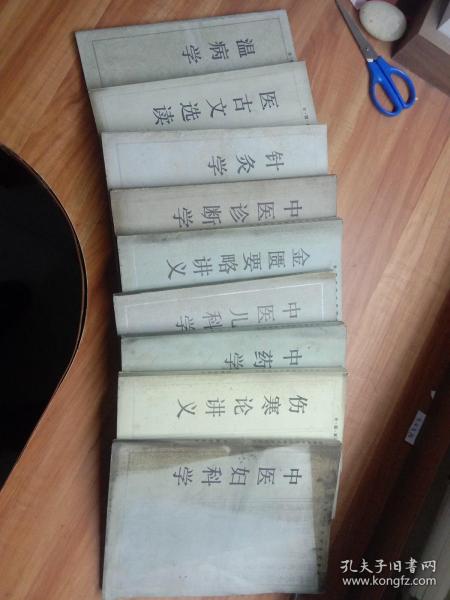 温病学
医古文选读
针灸学
中医诊断学
金匮要略讲义
中医儿科学
中药学
伤寒论讲义
中医妇科学
孔夫子旧书网
www.kongfz.com